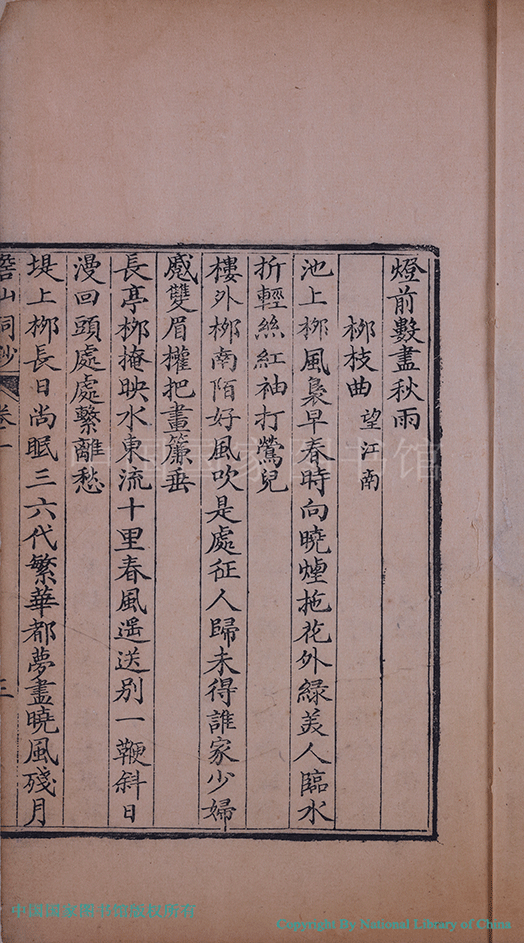 燈前數盡秋雨
柳枝曲 望江南
池上柳風裊早春時向曉煙拖花外綠美人臨水
折輕絲紅袖打鶯兒
樓外柳南陌好風吹是處征人歸未得誰家少婦
感雙眉權把畫簾垂
長亭柳掩映水東流十里春風遥送别一鞭斜日
漫回頭處處繫離愁
堤上柳長日尚眠三六代繁華都夢盡曉風殘月
山詞鈔 卷一 三
中国国家图书馆
中国国家图书馆版权所有
Copyright By National Library of China